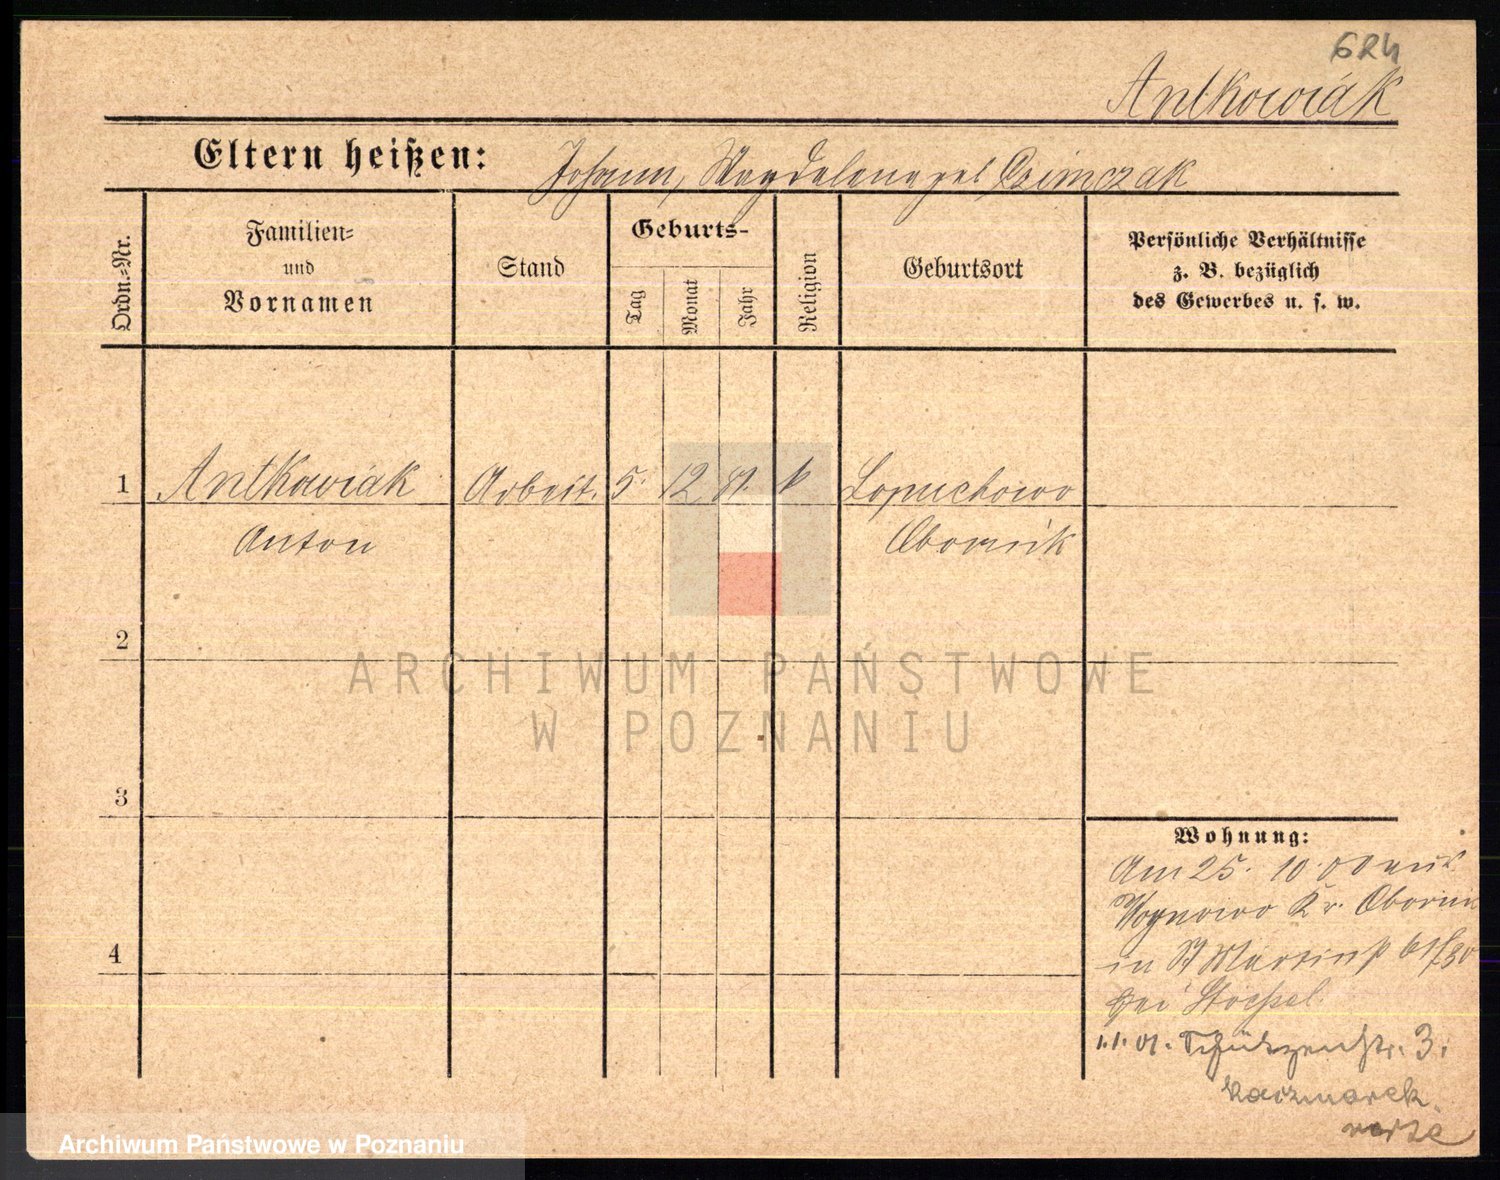 624
Antkowiak
Eltern heißen: Johann, Magdalena geb. Czimczak
Ordn.-Nr.
Familien-
und
Vornamen
Stand
Geburts-
Tag
Monat
Jahr
Religion
Geburtsort
Persönliche Verhältnisse
z. B. bezüglich
des Gewerbes u. s. w.
1 Antkowiak Arbeit. 5. 12 81. k Lopuchowo
Anton Obornik
2
ARCHIWUM PAŃSTWOWE
W POZNANIU
3
Wohnung:
Am 25. 10. 00 aus
Kr. Obornik
4
in St Martinst 61/30
bei
1.1.01. Schützenstr. 3.
Kaczmarek
Archiwum Państwowe w Poznaniu